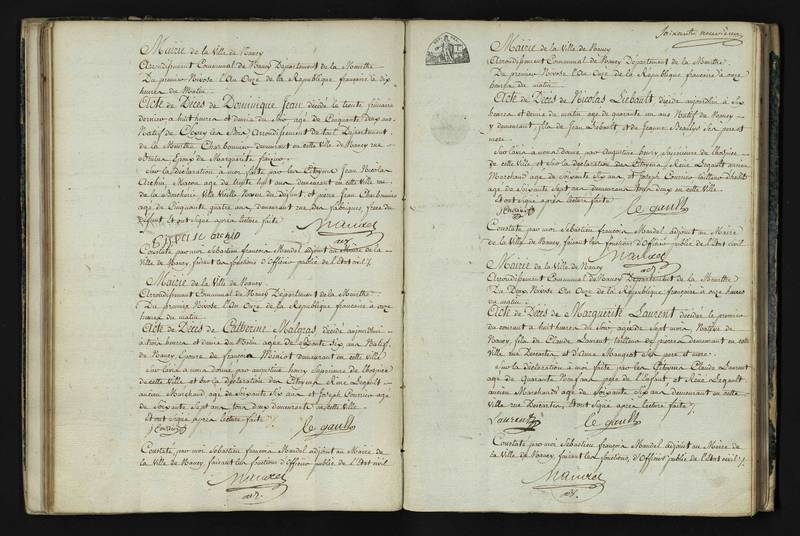 Mairie de la Ville de Nancy
Arrondissement Communal de Nancy Departement de la Meurthe
Du premier Nivose l'An Onze de la République française à dix
heures du Matin
Acte de Décès de Dominique Jean décédé le trente frimaire
dernier à huit heures et demie du Soir agé de Cinquante deux ans
Natif de Arrondissement de Departement
de la Meurthe Charbonnier demeurant en cette Ville de Nancy rue
Epoux de Marguerite
Sur la déclaration à moi faite par les Citoyens Jean Nicolas
Macon agé de huit ans demeurant en cette Ville rue
de la Boucherie et pierre Jean Charbonnier
agé de Cinquante quatre ans demeurant rue des fabriques, frere du
Défunt Et ont Signé après lecture faite
Mandel
adj.
Constaté par moi Sébastien françois Mandel adjoint au Maire de la
Ville de Nancy, faisant les fonctions d'Officier public de l'Etat civil
Mairie de la Ville de Nancy
Arrondissement Communal de Nancy Departement de la Meurthe
Du premier Nivose l'An Onze de la République française à onze
heures du matin
Acte de Décès de Catherine Malgras décédé aujourdhui
à heures et demie du Matin agée de Six ans Natif
de Nancy, Epouse de françois demeurant en cette Ville
Sur l'avis à moi donné par augustine henry Superieure de l'hospice
de cette Ville et Sur la déclaration des Citoyens René Legault
ancien Marchand agé de Soixante Six ans et Joseph Couvrier agé
de Soixante Sept ans tous deux demeurant en cette Ville
Et ont Signé après lecture faite
le gault
Constaté par moi Sébastien françois Mandel adjoint au Maire de
la Ville de Nancy, faisant les fonctions d'Officier public de l'Etat civil
Mandel
adj.
Mairie de la Ville de Nancy
Arrondissement Communal de Nancy Departement de la Meurthe
Du premier Nivose l'An Onze de la République française à onze
heures du matin
Acte de Décès de Nicolas Liebault décédé aujourdhui à Six
heures et demie du matin agé de quarante un ans Natif de Nancy
y demeurant, fils de Jean Liebault et de Jeanne Ses pere et
mere
Sur l'avis à moi donné par Augustine henry Superieure de l'hospice
de cette Ville et Sur la déclaration des Citoyens René Legault ancien
Marchand agé de Soixante Six ans, et Joseph Couvrier tailleur d'habits
agé de Soixante Sept ans demeurant tous deux en cette Ville
Et ont Signé après lecture faite
le gault
Constaté par moi Sébastien françois Mandel adjoint au Maire
de la Ville de Nancy, faisant les fonctions d'Officier public de l'Etat civil
Mandel
adj.
Mairie de la Ville de Nancy
Arrondissement Communal de Nancy Departement de la Meurthe
Du Deux Nivose An Onze de la République française à onze heures
du matin
Acte de Décès de Marguerite Laurent décédée le premier
du courant à huit heures du Soir agée de Sept mois, Native de
Nancy, fille de Claude Laurent tailleur de pierre demeurant en cette
Ville rue et d'Anne Mangeot Ses pere et mere
Sur la déclaration à moi faite par les Citoyens Claude Laurent
agé de Quarante pere de l'Enfant et René Legault
ancien Marchand agé de Soixante Six ans demeurant en cette
Ville rue Et ont Signé après lecture faite
Laurent le gault
Constaté par moi Sébastien françois Mandel adjoint au Maire de
la Ville de Nancy, faisant les fonctions, d'Officier public de l'Etat civil
Mandel
adj.